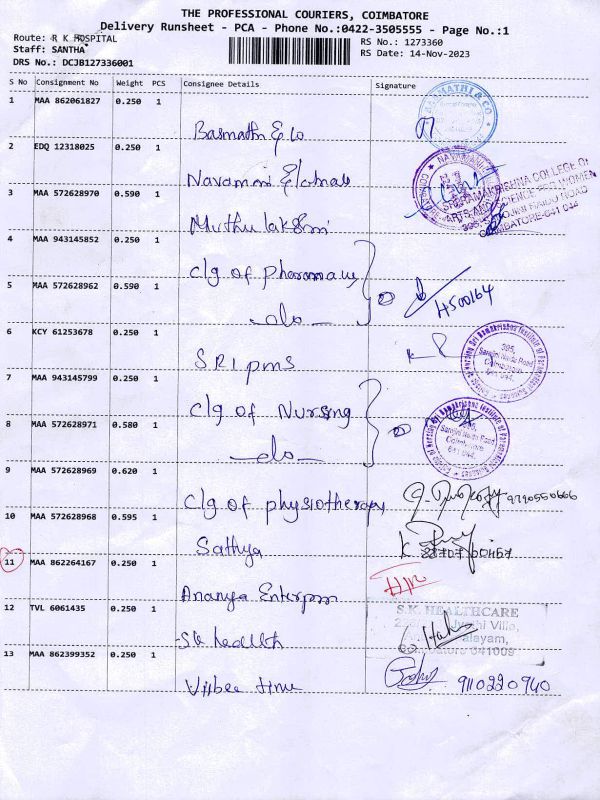 THE PROFESSIONAL COURIERS, COIMBATORE
Delivery Runsheet - PCA - Phone No.:0422-3505555 - Page No.:1
Route: R K HOSPITAL
Staff: SANTHA
DRS No.: DCJB127336001
RS No.: 1273360
RS Date: 14-Nov-2023
S No Consignment No Weight PCS Consignee Details Signature
1 MAA 862061827 0.250 1
BASMATHI & CO
Basmathi & co
2 EDQ 12318025 0.250 1
SRI RAMAKRISHNA COLLEGE OF
ARTS AND SCIENCE FOR WOMEN
COIMBATORE-641 044
3 MAA 572628970 0.590 1
Muthu lakshmi
4 MAA 943145852 0.250 1
clg of pharmacy
5 MAA 572628962 0.590 1
-do-
4500164
6 KCY 61253678 0.250 1
SRI pms
395,
Sarojini Naidu Road
Coimbatore
641 044.
7 MAA 943145799 0.250 1
clg of Nursing
8 MAA 572628971 0.580 1
-do-
Sarojini Naidu Road
Coimbatore
641 044.
9 MAA 572628969 0.620 1
clg of physiotherapy
10 MAA 572628968 0.595 1
Sathya
11 MAA 862264167 0.250 1
12 TVL 6061435 0.250 1
S.K. HEALTHCARE
Coimbatore 641009
S.K health
13 MAA 862399352 0.250 1
9110220940